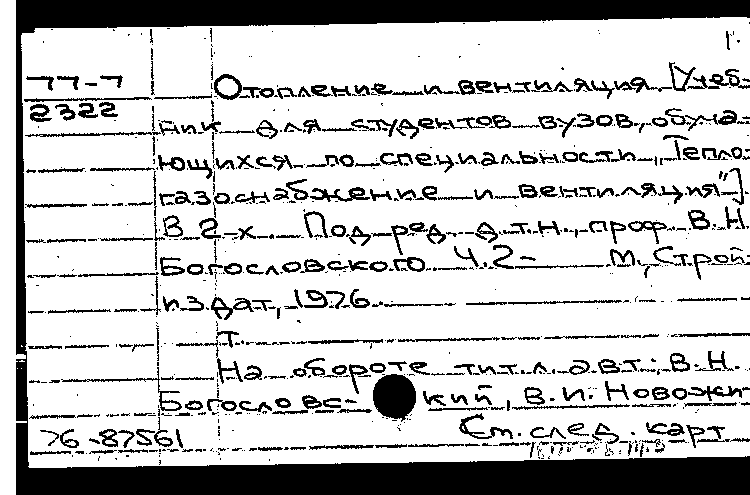 1.
77-7 Отопление и вентиляция [Учеб-
2322
ник для студентов вузов, обуча-
ющихся по специальности „Тепло-
газоснабжение и вентиляция"].
В 2-х Под ред. д.т.н., проф. В.Н.
Богословского Ч.2- М., Строй-
издат, 1976.
т.
На обороте тит.л. авт.: В.Н.
Богословс- кий, В.И. Новожи-
76-87561 См. след. карт